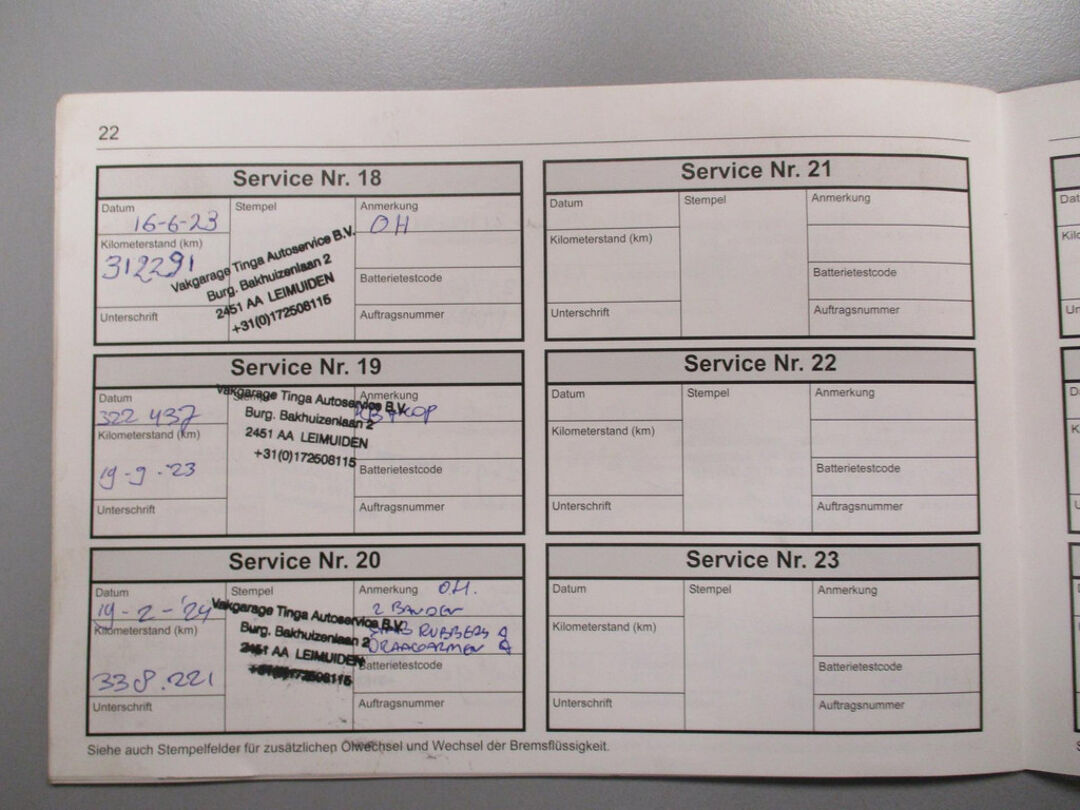 22
Service Nr. 18
Datum
16-6-23
Stempel
Anmerkung
OH
Kilometerstand (km)
312291
Vakgarage Tinga Autoservice B.V.
Burg. Bakhuizenlaan 2
2451 AA LEIMUIDEN
+31(0)172508115
Batterietestcode
Unterschrift
Auftragsnummer
Service Nr. 19
Datum
322 437
Stempel
Anmerkung
Kilometerstand (km)
19-9-23
Vakgarage Tinga Autoservice B.V.
Burg. Bakhuizenlaan 2
2451 AA LEIMUIDEN
+31(0)172508115
Batterietestcode
Unterschrift
Auftragsnummer
Service Nr. 20
Datum
19-2-'24
Stempel
Anmerkung OH.
2 BANDEN
STAB RUBBERS
DRAAGARMEN
Kilometerstand (km)
338.221
Vakgarage Tinga Autoservice B.V.
Burg. Bakhuizenlaan 2
2451 AA LEIMUIDEN
+31(0)172508115
Batterietestcode
Unterschrift
Auftragsnummer
Service Nr. 21
Datum
Stempel
Anmerkung
Kilometerstand (km)
Batterietestcode
Unterschrift
Auftragsnummer
Service Nr. 22
Datum
Stempel
Anmerkung
Kilometerstand (km)
Batterietestcode
Unterschrift
Auftragsnummer
Service Nr. 23
Datum
Stempel
Anmerkung
Kilometerstand (km)
Batterietestcode
Unterschrift
Auftragsnummer
Siehe auch Stempelfelder für zusätzlichen Ölwechsel und Wechsel der Bremsflüssigkeit.